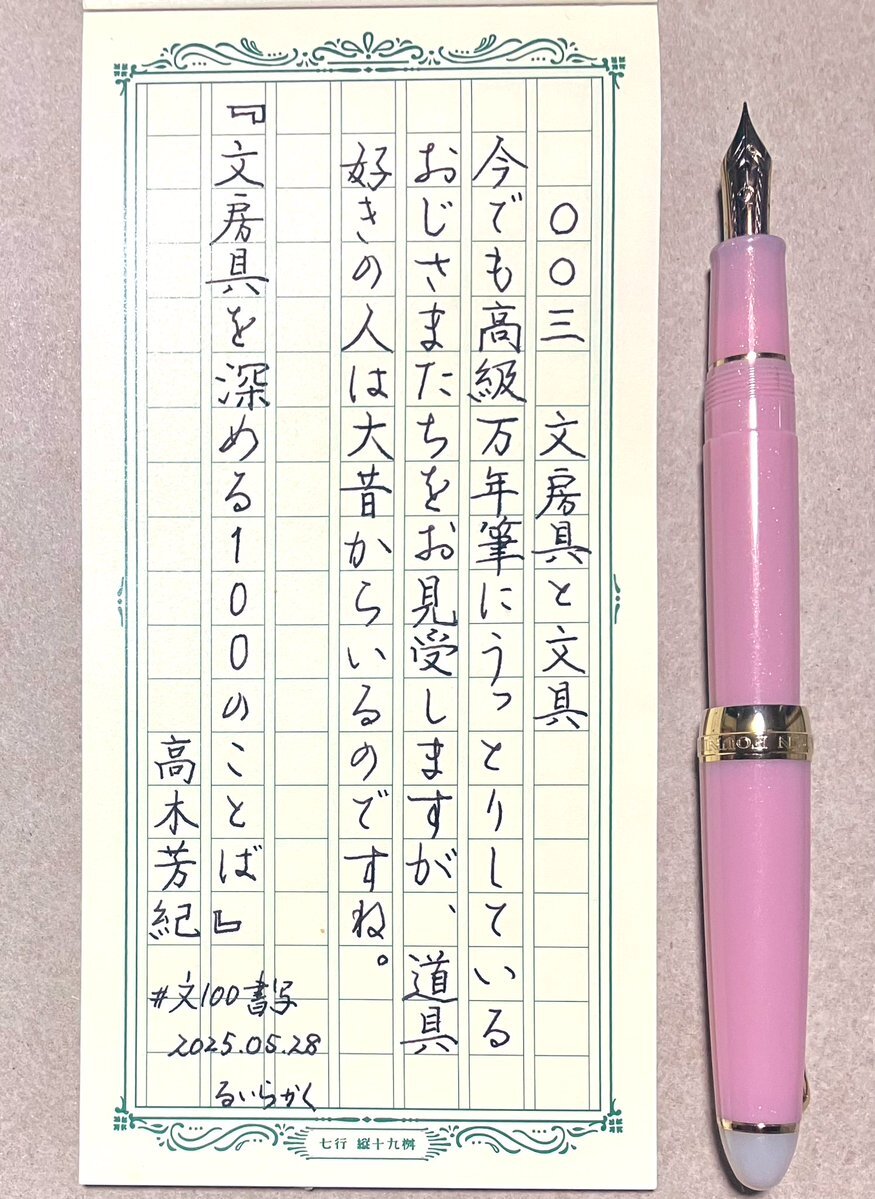 〇〇三　文房具と文具
今でも高級万年筆にうっとりしている
おじさまたちをお見受けしますが、道具
好きの人は大昔からいるのですね。
『文房具を深める100のことば』
高木芳紀
#文100書写
2025.05.28
るいらかく
七行 縦十九桝